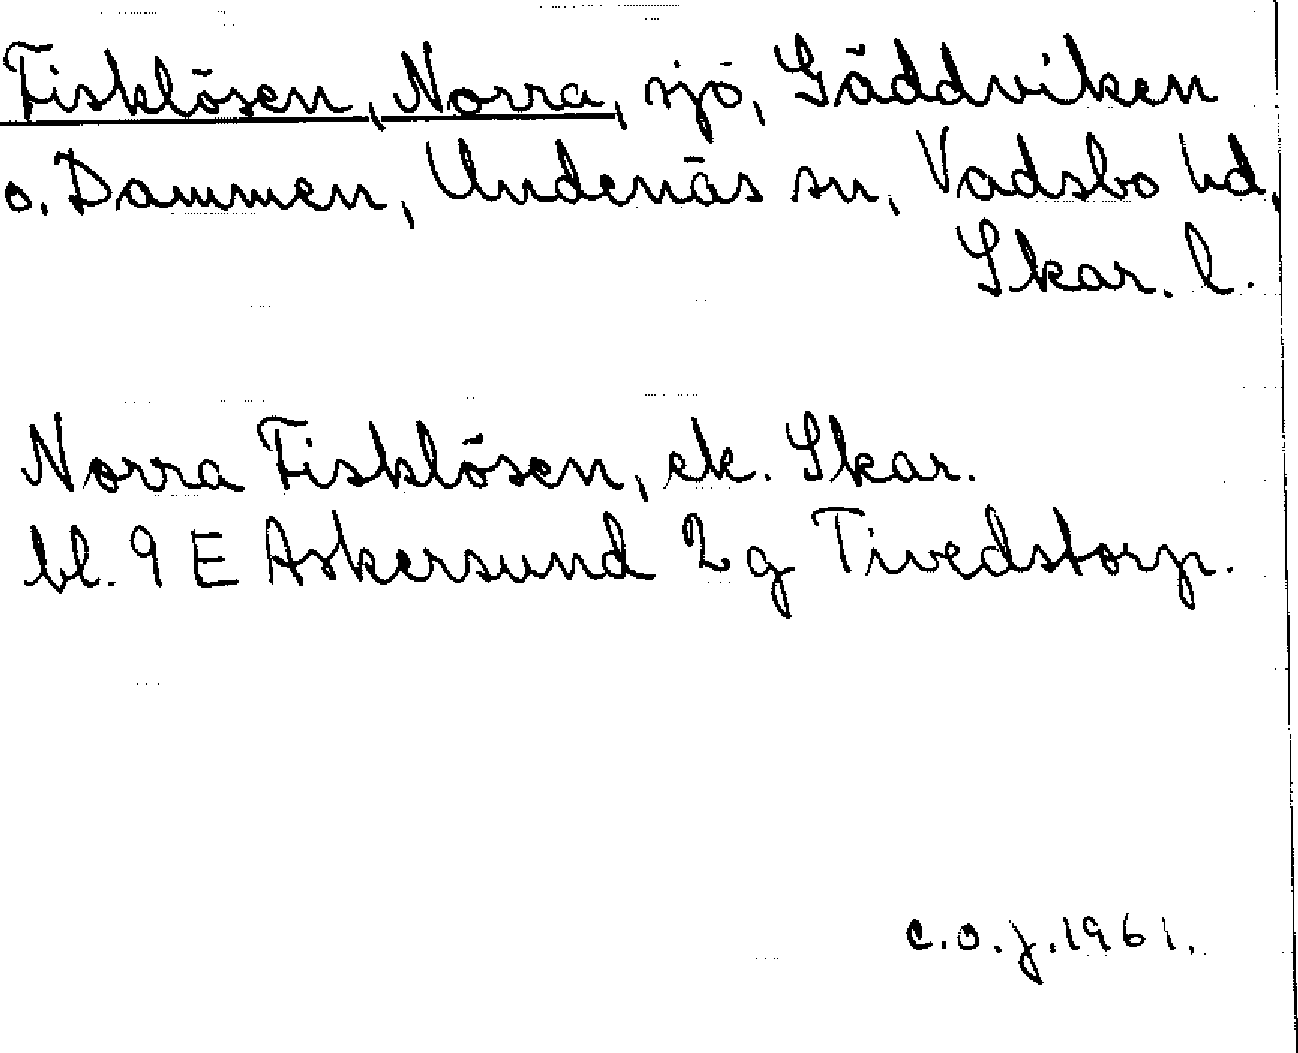 Fisklösen, Norra, sjö, Gäddviken
o. Dammen, Undenäs sn, Vadsbo hd,
Skar. l.
Norra Fisklösen, ek. Skar.
bl. 9 E Askersund 2 g Tivedstorp.
c.o.j. 1961.